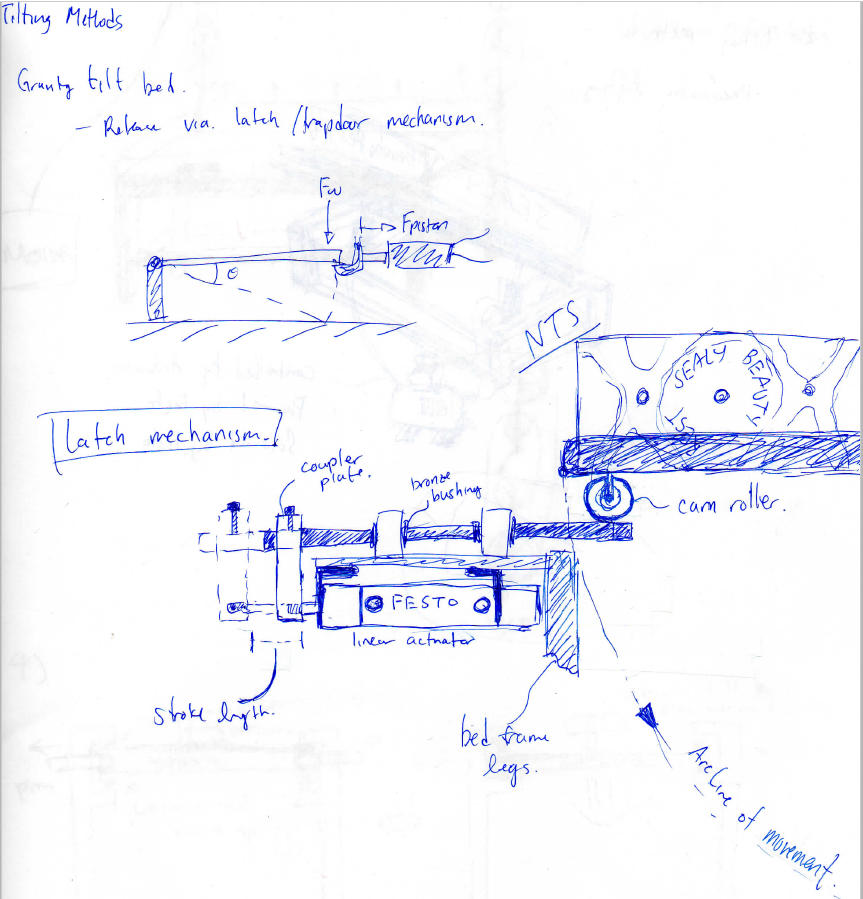 Tilting Methods
Gravity tilt bed.
- Release via. latch /trapdoor mechanism.
Fw
Fpiston
θ
NTS
SEALY BEAUTY
REST
Latch mechanism.
coupler
plate.
bronze
bushing
cam roller.
FESTO
linear actuator
stroke length.
bed frame
legs.
Arc line of movement.